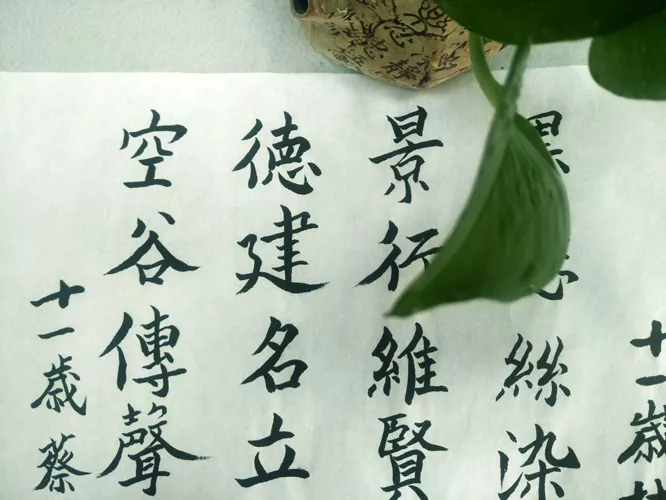 十一歲
絲染
景行維賢
德建名立
空谷傳聲
十一歲蔡